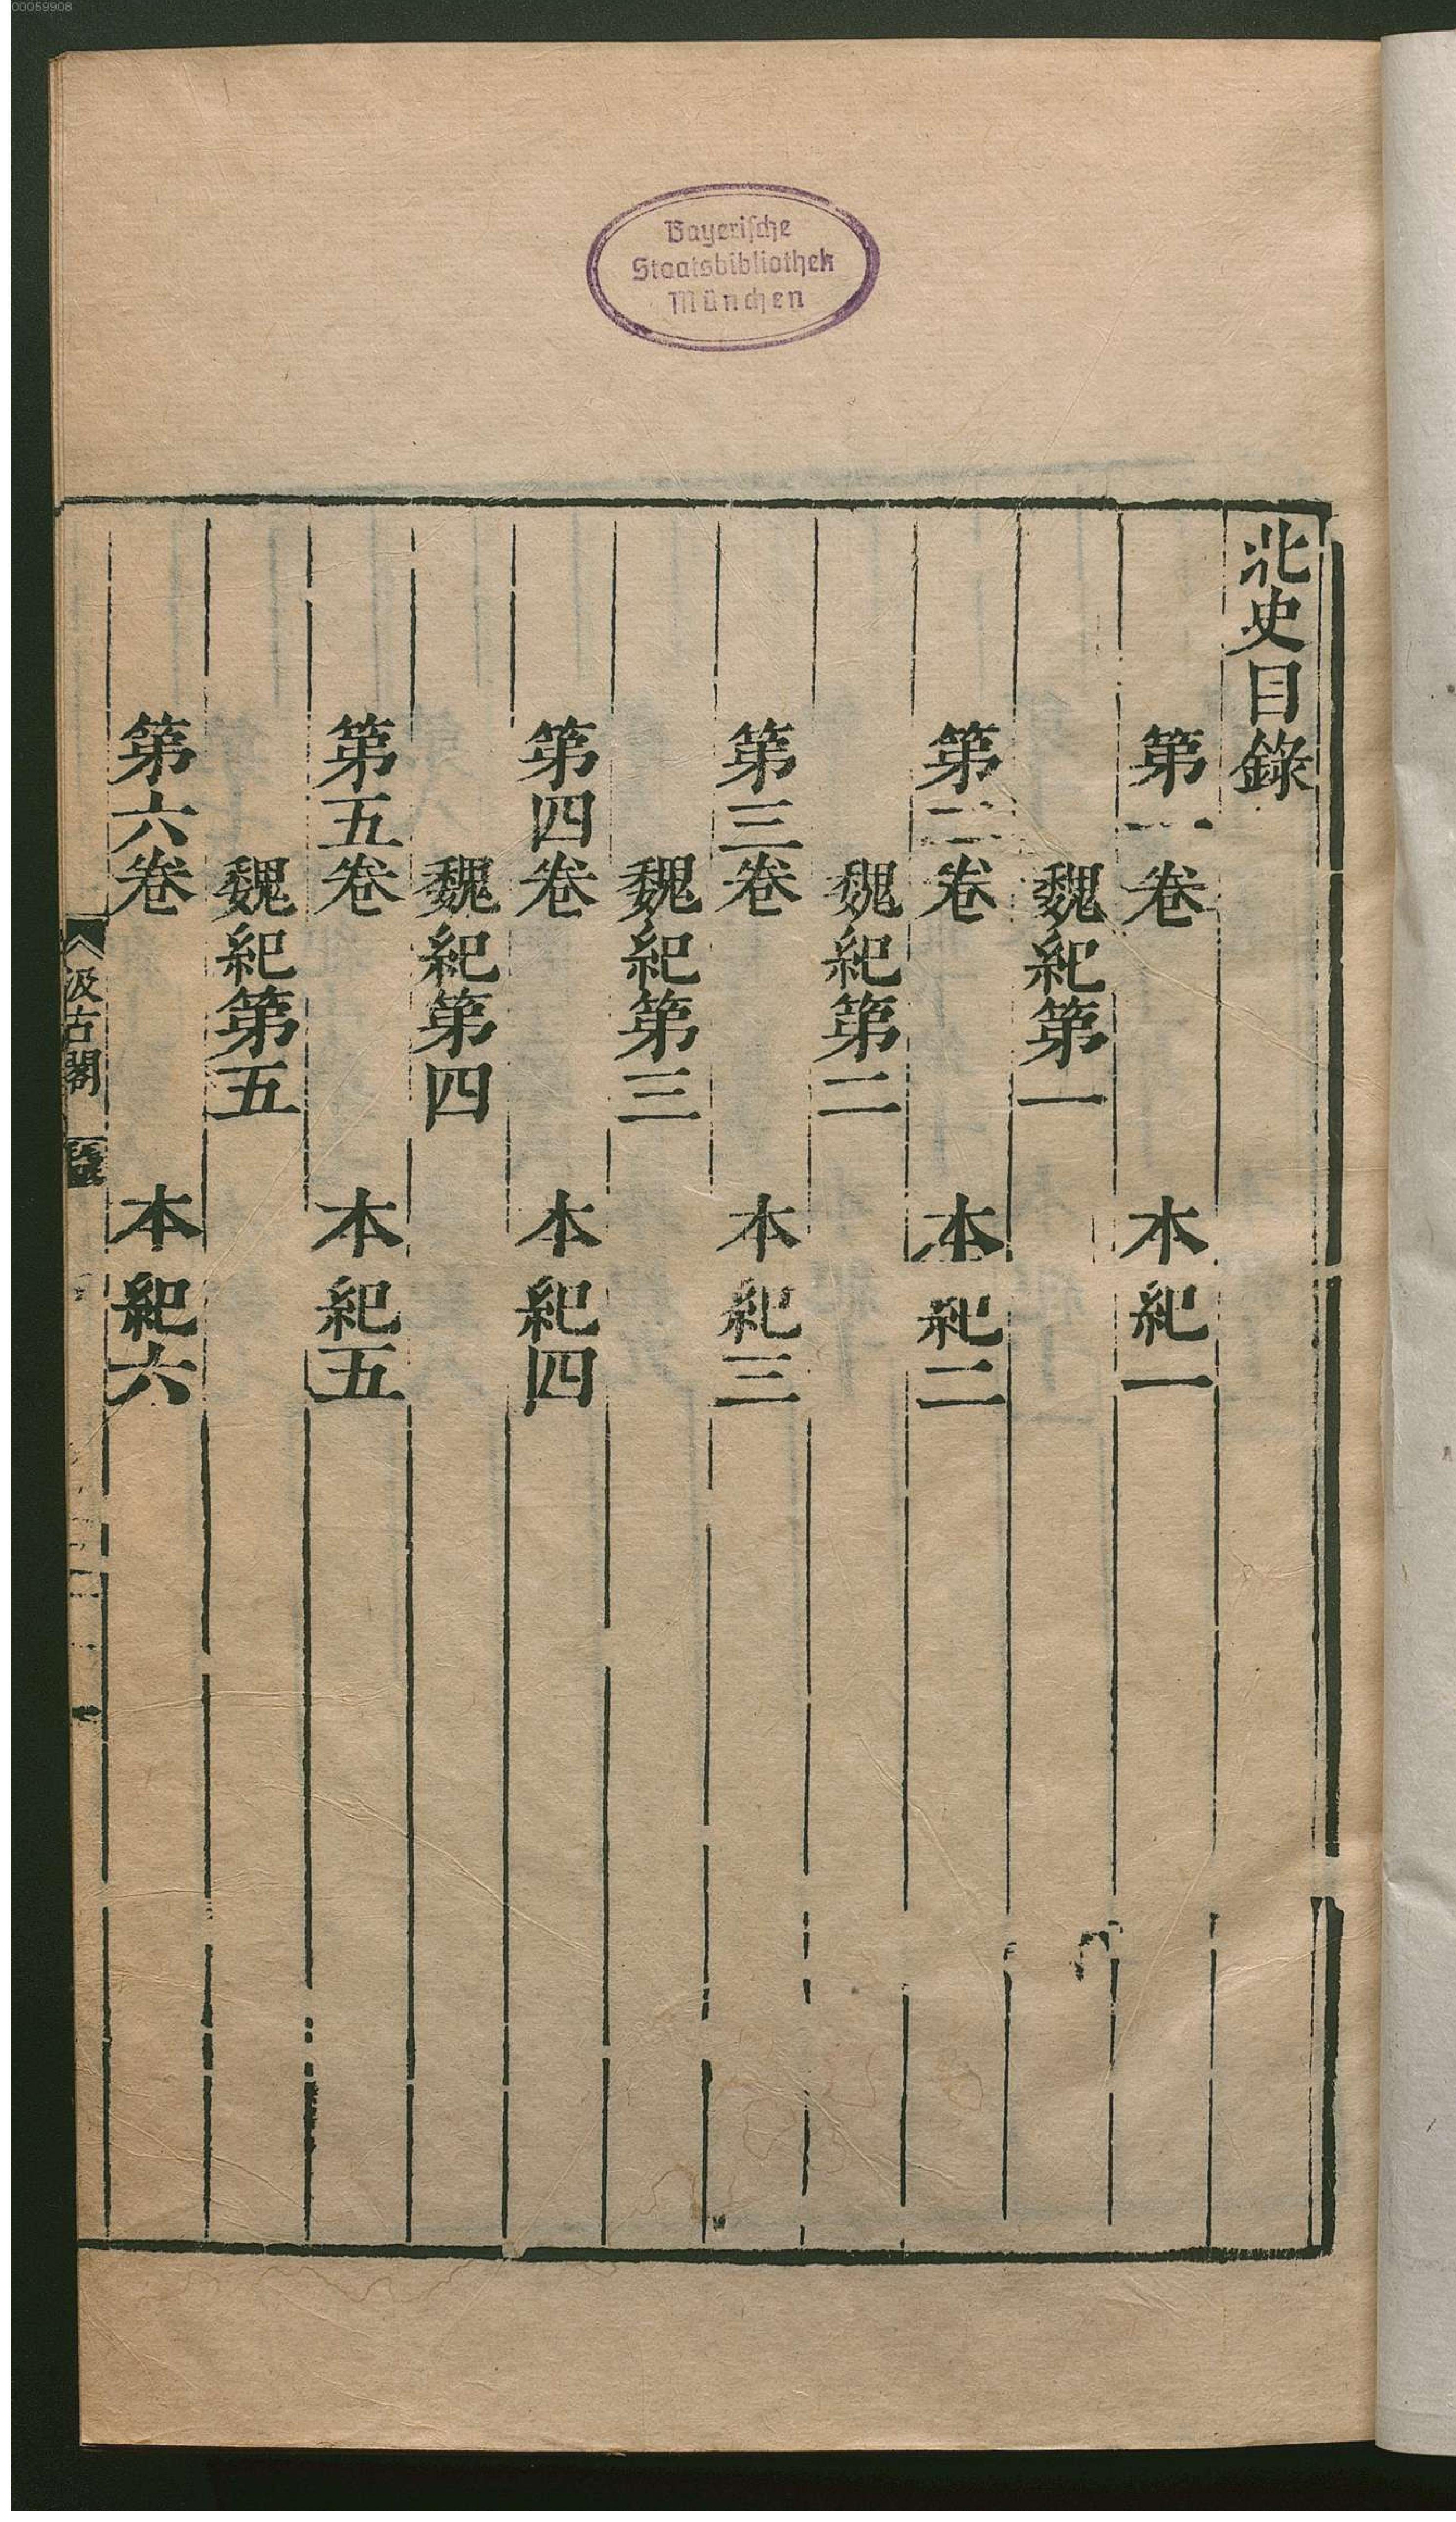 00059908
Bayerische
Staatsbibliothek
München
北史目錄
第一卷 本紀一
魏紀第一
第二卷 本紀二
魏紀第二
第三卷 本紀三
魏紀第三
第四卷 本紀四
魏紀第四
第五卷 本紀五
魏紀第五
第六卷 本紀六
汲古閣